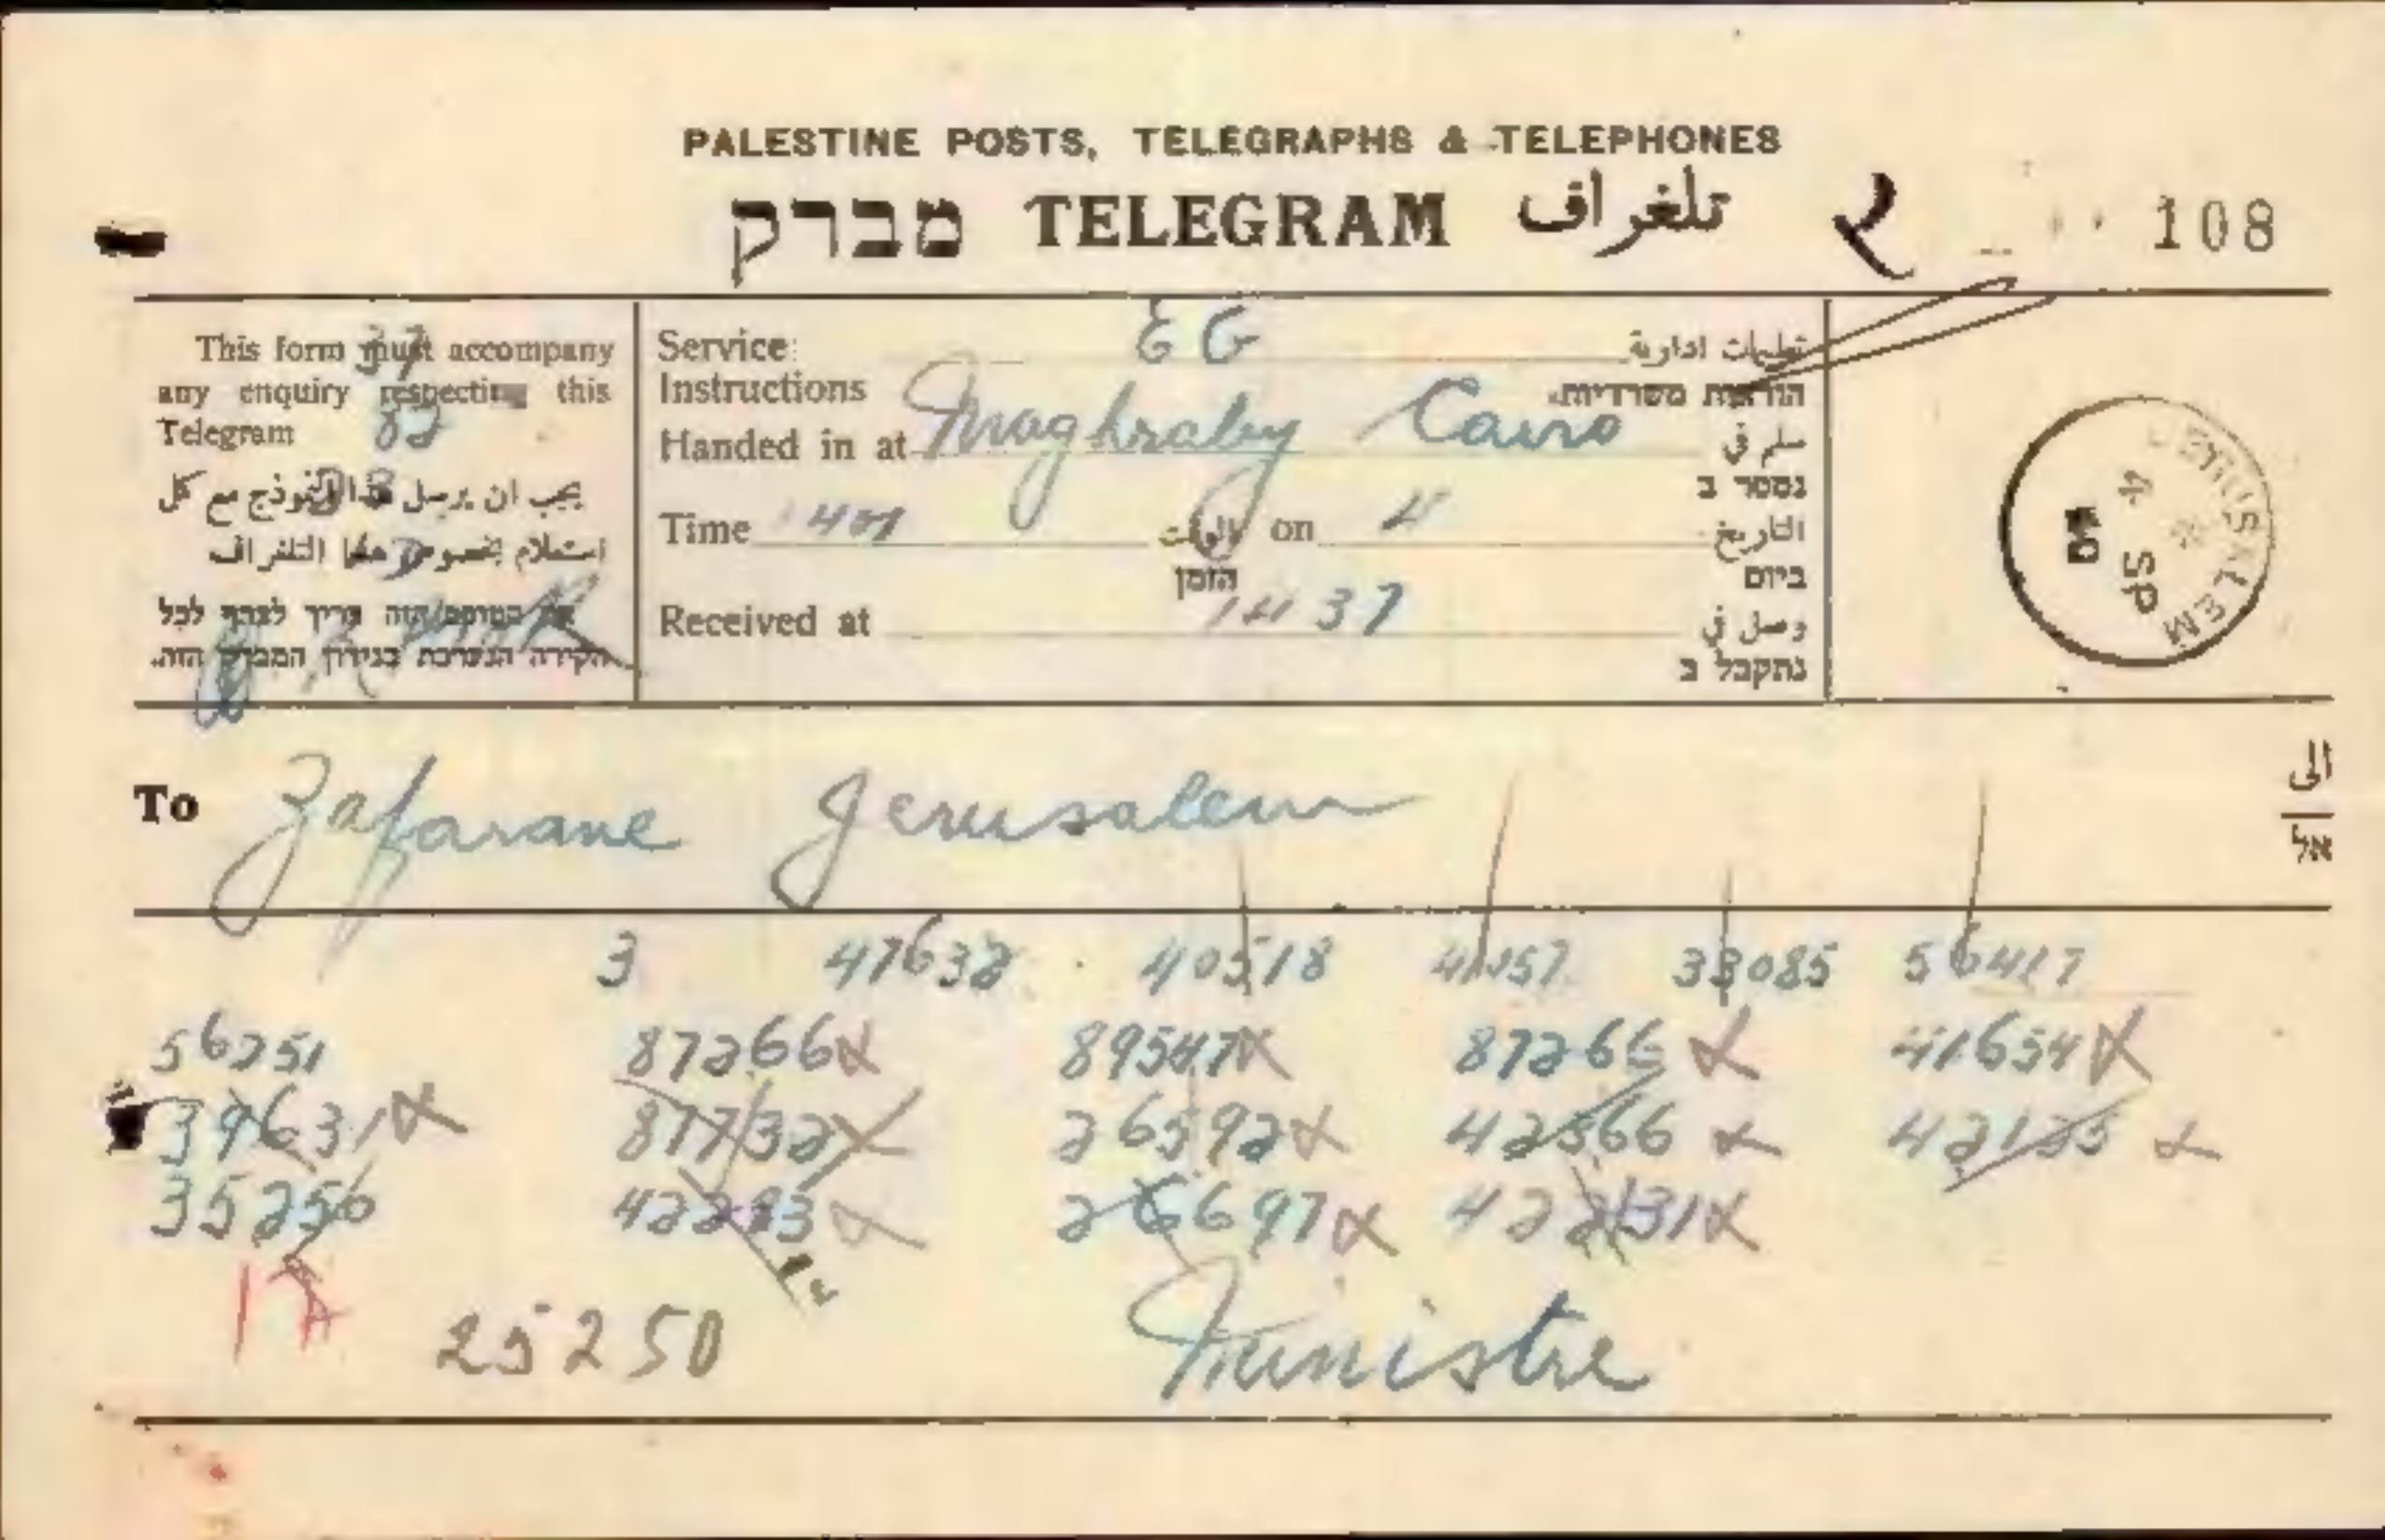 PALESTINE POSTS, TELEGRAPHS & TELEPHONES
מברק TELEGRAM تلغراف
108
This form must accompany
any enquiry respecting this
Telegram
يجب ان يرسل هذا النموذج مع كل
استعلام بخصوص هذا التلغراف
את הטופס הזה צריך לצרף לכל
חקירה הנערכת בנידון המברק הזה.
Service: EG تعليمات ادارية
Instructions הוראות משרדיות
Handed in at Maghraby Cairo سلم في
נמסר ב
Time 1401 الوقت on 4 التاريخ
הזמן ביום
Received at 1437 وصل في
נתקבל ב
JERUSALEM
4 SP
To Zafarane Jerusalem الى
אל
3 47632 40518 41157 33085 56417
56251 87266 89547 87266 41654
39631 87732 26592 42566 42135
35256 42293 26697 422131
25250
Ministre